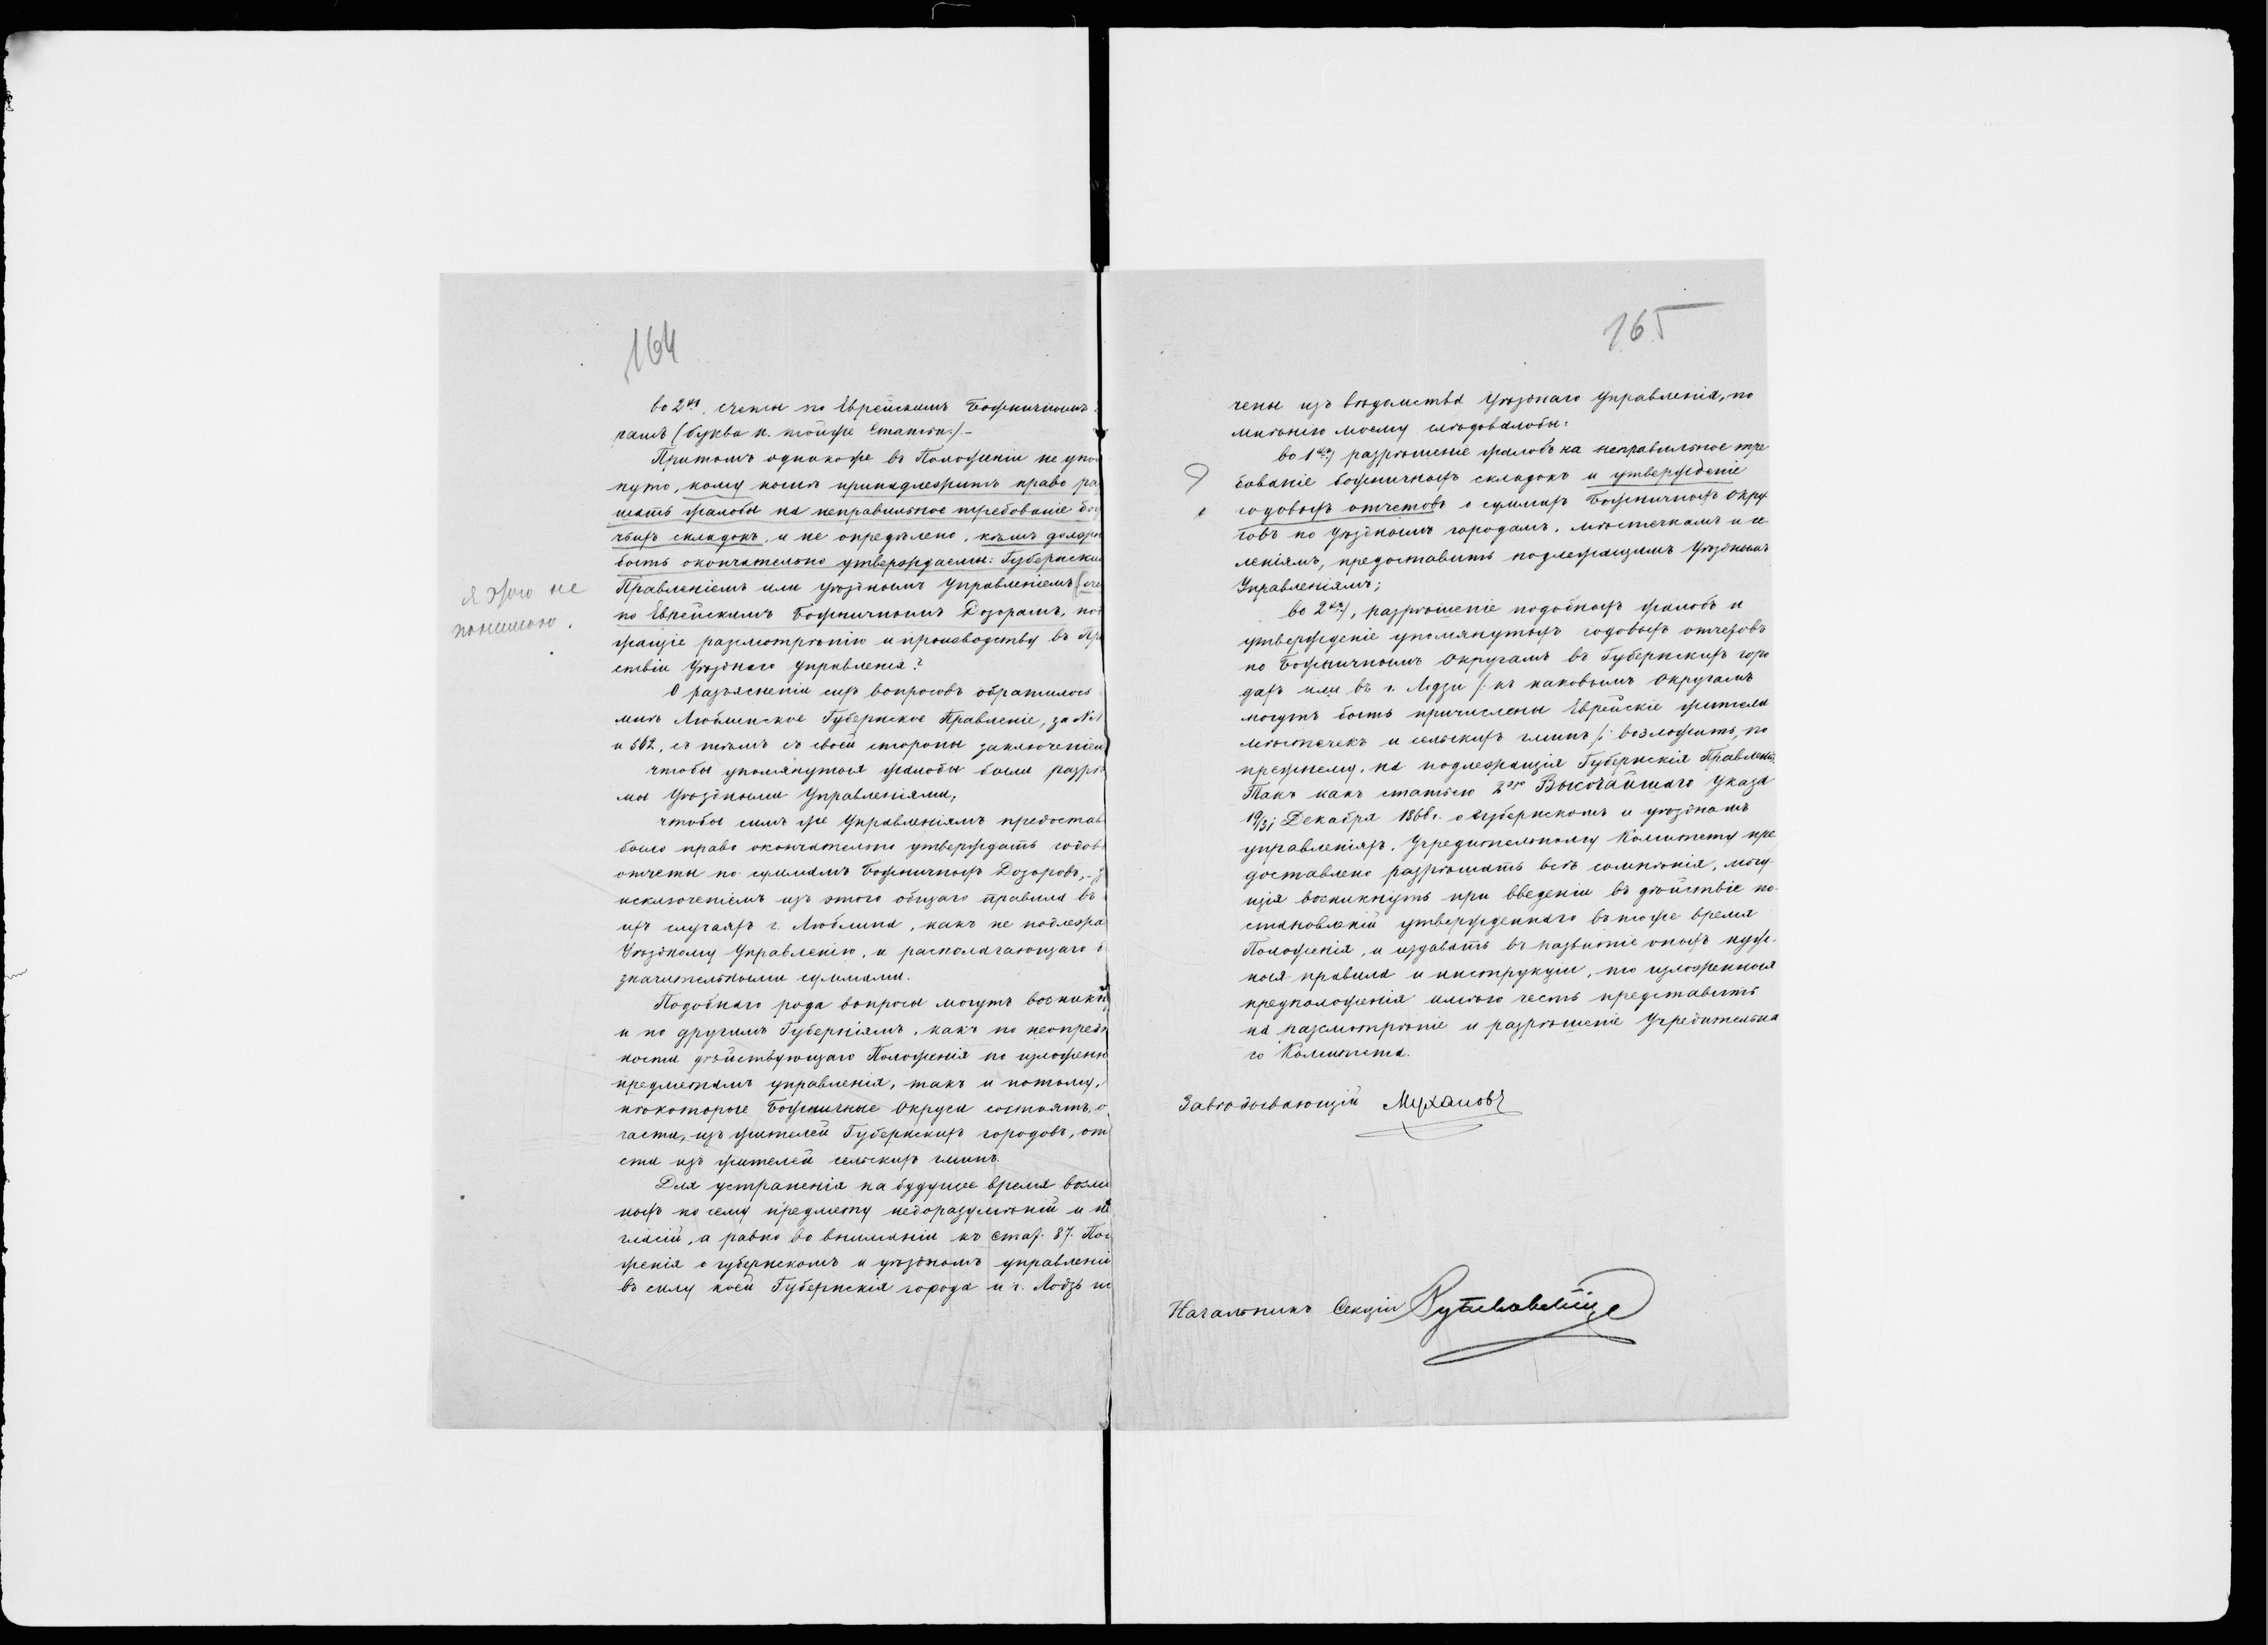 164
во 2хъ, счеты по Еврейскимъ Божничнымъ
гамъ (буква н. тойже Статьи).-
Притомъ однакоже въ Положеніи не упо
нуто, кому нынѣ принадлежитъ право ра
шать жалобы на неправильное требованіе бо
чныхъ складокъ, и не опредѣлено, кѣмъ должн
быть окончательно утверждаемы: Губернски
Правленіемъ или Уѣзднымъ Управленіемъ
по Еврейскимъ Божничнымъ Дозорамъ, по
жащіе разсмотрѣнію и производству въ Пр
ствіи Уѣзднаго Управленія?
Я этого не
понимаю.
О разъясненіи сихъ вопросовъ обратилось
мнѣ Люблинское Губернское Правленіе, за №
и 562, съ тѣмъ съ своей стороны заключеніем
чтобы упомянутыя жалобы были разрѣ
мы Уѣздными Управленіями,
чтобы симъ же Управленіямъ предостав
было право окончательно утверждать годов
отчеты по суммамъ Божничныхъ Дозоровъ,
исключеніемъ изъ этого общаго правила въ
ихъ случаяхъ г. Люблина, какъ не подлежа
Уѣздному Управленію, и располагающаго
значительными суммами.
Подобнаго рода вопросы могутъ возникн
и по другимъ Губерніямъ, какъ по неопредѣ
ности дѣйствующаго Положенія по изложенн
предметамъ управленія, такъ и потому,
нѣкоторые Божничные Округи состоятъ, о
части, изъ жителей Губернскихъ городовъ, от
сти изъ жителей сельскихъ гминъ.
Для устраненія на будущее время возмо
ныхъ по сему предмету недоразумѣній и не
гласій, а равно во вниманіи къ стат. 87. Пол
женія о губернскомъ и уѣздномъ управлені
въ силу коей Губернскія города и г. Лодзь ис
165
чены изъ вѣдомства Уѣзднаго Управленія, по
мнѣнію моему слѣдовалобы:
во 1хъ) разрѣшеніе жалобъ на неправильное тре
бованіе божничныхъ складокъ и утвержденіе
годовыхъ отчетовъ о суммахъ Божничныхъ Окру
говъ по Уѣзднымъ городамъ, мѣстечкамъ и се
леніямъ, предоставить подлежащимъ Уѣзднымъ
Управленіямъ;
?
во 2хъ), разрѣшеніе подобныхъ жалобъ и
утвержденіе упомянутыхъ годовыхъ отчетовъ
по Божничнымъ Округамъ въ Губернскихъ горо
дахъ или въ г. Лодзи /: къ каковымъ Округамъ
могутъ быть причислены Еврейскіе жители
мѣстечекъ и сельскихъ гминъ :/ возложить, по
прежнему, на подлежащія Губернскія Правлені
Такъ какъ статьею 2ою Высочайшаго Указа
19/31 Декабря 1866 г. о губернскомъ и уѣздномъ
управленіяхъ, Учредительному Комитету пре
доставлено разрѣшать всѣ сомнѣнія, могу
щія возникнуть при введеніи въ дѣйствіе по-
становленій утвержденнаго въ тоже время
Положенія, и издавать въ развитіе оныхъ нуж-
ныя правила и инструкціи, то изложенныя
предположенія имѣю честь представить
на разсмотрѣніе и разрѣшеніе Учредительна
го Комитета.
Завѣдывающій Мухановъ
Начальникъ Секціи